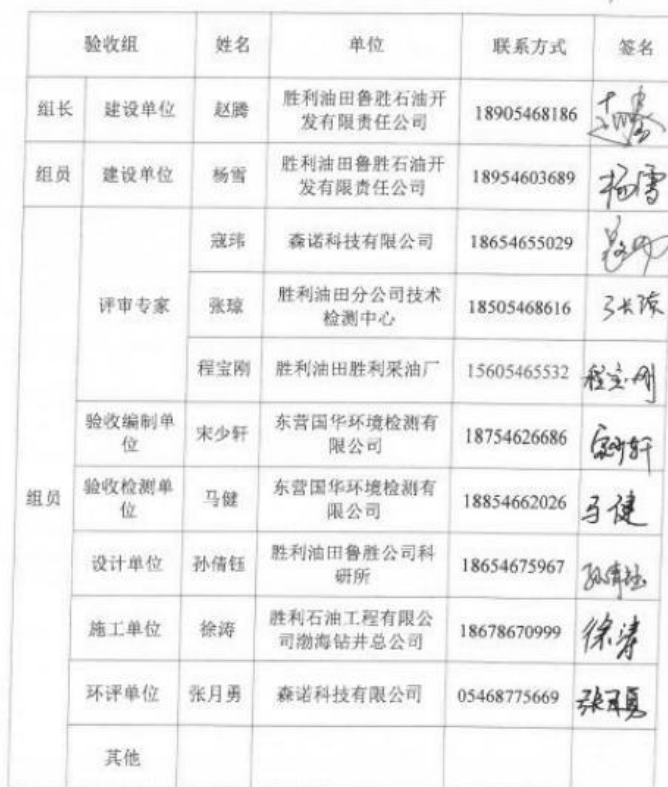 验收组 姓名 单位 联系方式 签名
组长 建设单位 赵腾 胜利油田鲁胜石油开
发有限责任公司 18905468186
组员 建设单位 杨雪 胜利油田鲁胜石油开
发有限责任公司 18954603689 杨雪
组员
评审专家
寇玮 森诺科技有限公司 18654655029
张琼 胜利油田分公司技术
检测中心 18505468616 张琼
程宝刚 胜利油田胜利采油厂 15605465532 程宝刚
验收编制单
位 宋少轩 东营国华环境检测有
限公司 18754626686 宋少轩
验收检测单
位 马健 东营国华环境检测有
限公司 18854662026 马健
设计单位 孙倩钰 胜利油田鲁胜公司科
研所 18654675967 孙倩钰
施工单位 徐涛 胜利石油工程有限公
司渤海钻井总公司 18678670999 徐涛
环评单位 张月勇 森诺科技有限公司 05468775669 张月勇
其他